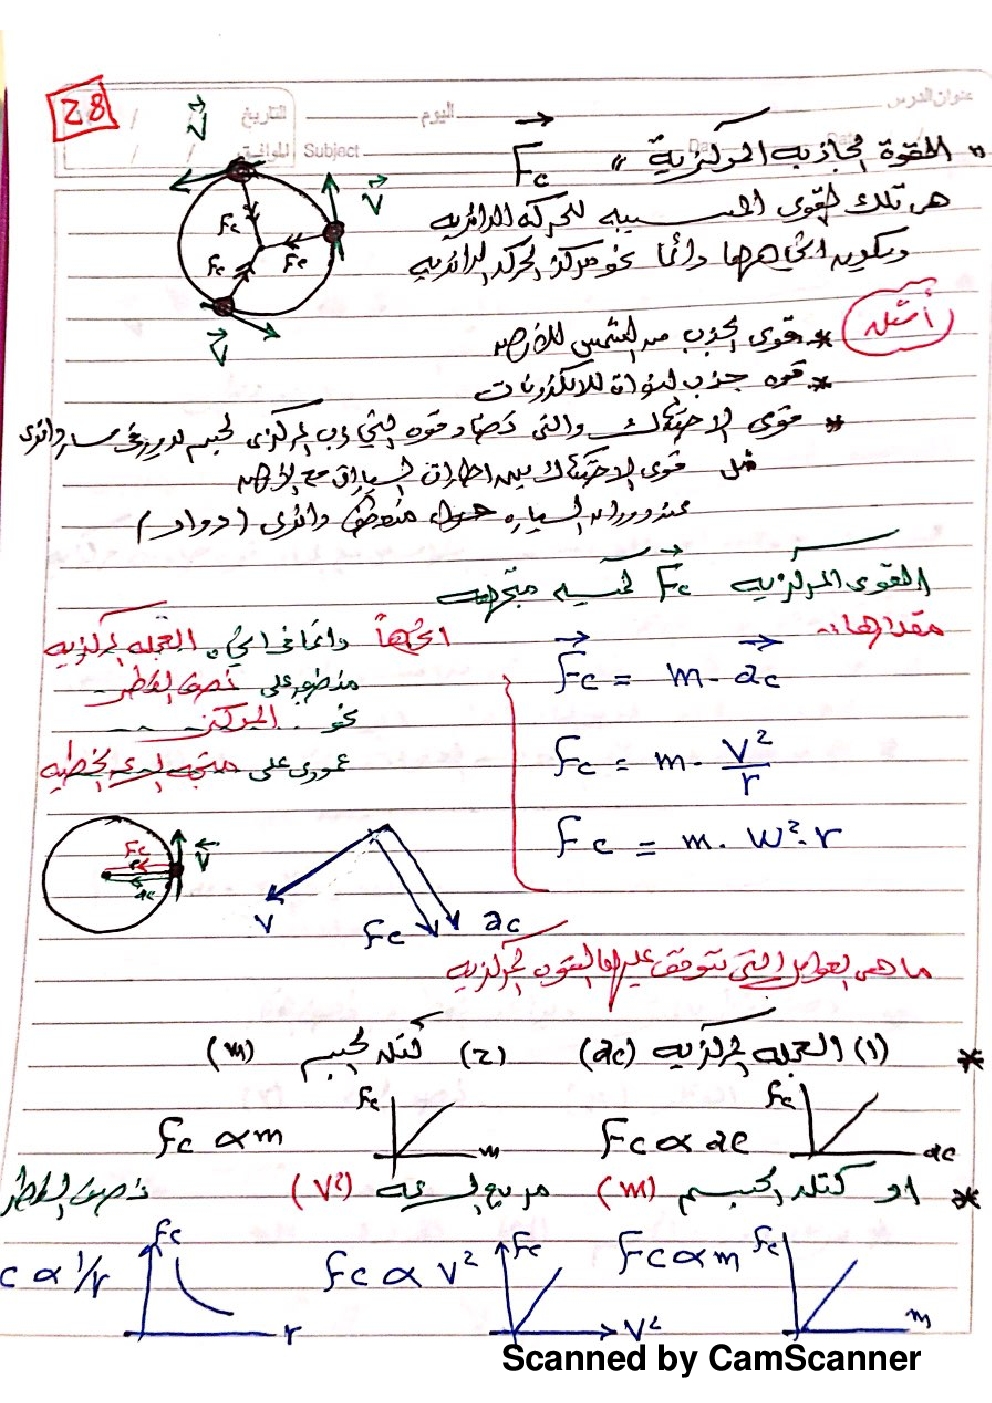 28
عنوان الدرس اليوم التاريخ
Subject
" القوة الجاذبة المركزية " Fc
هي تلك القوى المسببه للحركه الدائريه
ويكون اتجاهها دائما نحو مركز الحركه الدائريه
V
V
V
Fc
Fc
Fc
أمثله
* قوى الجذب من الشمس للأرض
* قوه جذب النواة للالكترونات
* قوى الاحتكاك والتي تضاد قوه التجاذب المركزى لجسم يدور في مسار دائرى
مثل قوى الاحتكاك بين اطارات السيارات مع الأرض
عند دوران السياره حول منعطف دائرى (دوار)
القوى المركزيه Fc كميه متجهه
مقدارها:
Fc = m . ac
Fc = m . V²/r
Fc = m . w² . r
اتجاهها دائما في اتجاه العجله المركزيه
منطبق على نصف القطر
نحو المركز
عمودى على متجه السرعه الخطيه
Fc
ac
V
V
Fc
ac
ما هى العوامل التي تتوقف عليها القوه المركزيه
* (1) العجله المركزيه (ac) (2) كتله الجسم (m)
Fc ac Fc ∝ ac Fc m Fc ∝ m
* او كتله الجسم (m) مربع السرعه (V²) نصف القطر
Fc m Fc ∝ m Fc V² Fc ∝ V² Fc r c ∝ 1/r
Scanned by CamScanner